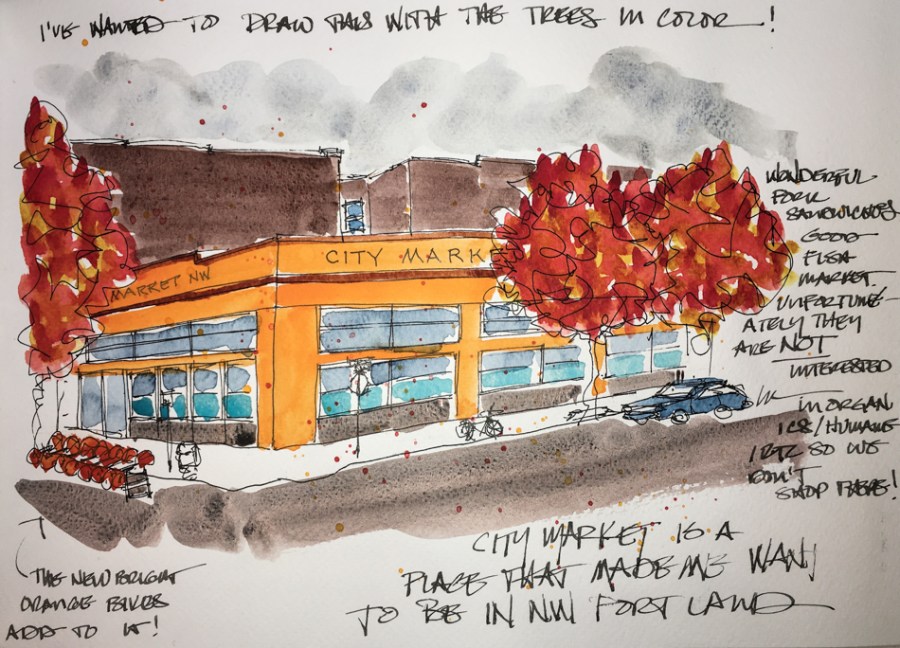 I'VE WANTED TO DRAW THIS WITH THE TREES IN COLOR!
MARKET NW
CITY MARKE
WONDERFUL
PORK
SANDWICHES
GOOD
MARKET.
UNFORTUNE-
ATELY THEY
ARE NOT
INTERESTED
IN ORGAN
ICS/HUMANE
ETC SO WE
DON'T
SHOP THERE!
THE NEW BRIGHT
ORANGE BIKES
ADD TO IT!
CITY MARKET IS A
PLACE THAT MADE ME WANT
TO BE IN NW PORTLAND